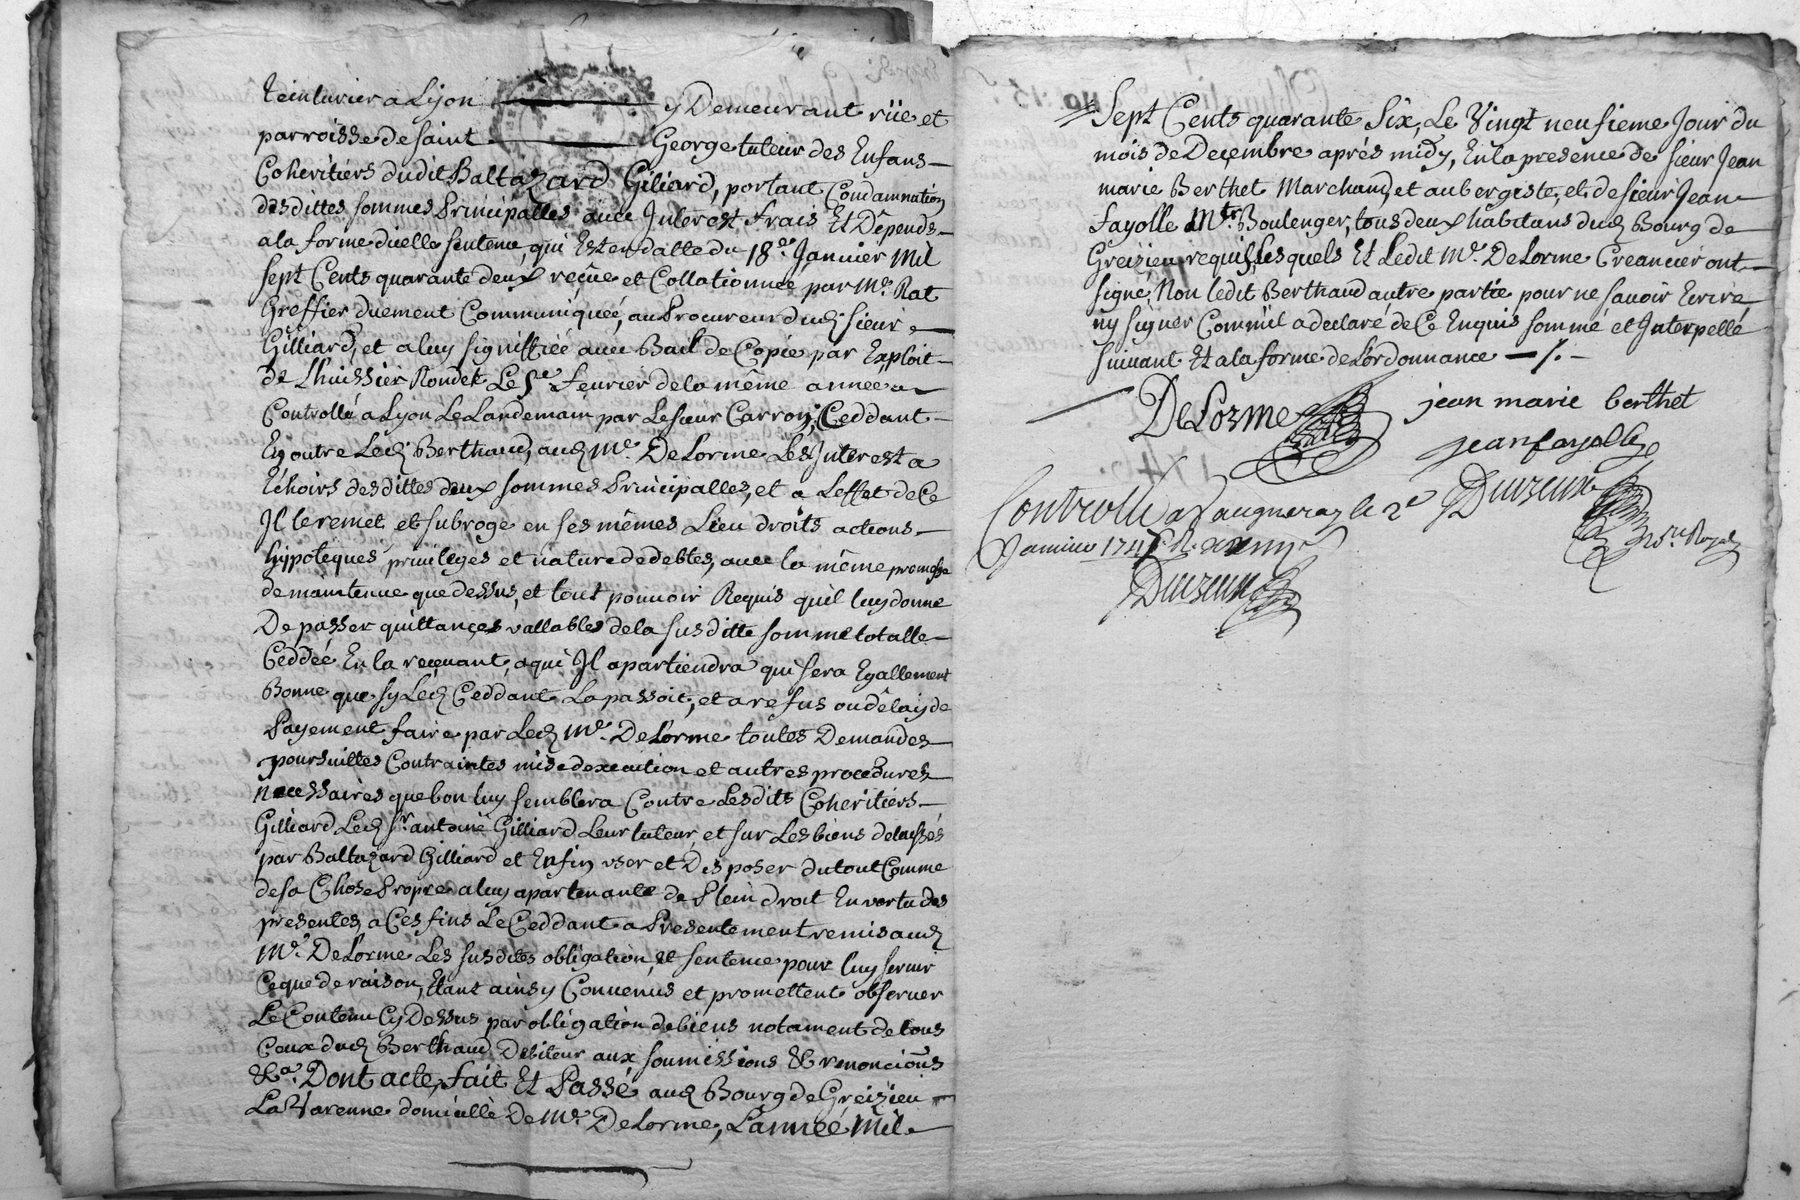 teinturier a Lyon y Demeurant rüe et
parroisse de saint George tuteur des Enfans
Coheritiérs dudit Baltazard Giliard, portant Condamnatión
desdittes sommes Principalles avec Interest frais Et Dêpends
a la forme dicelle sentence, qui Est en datte du 18.e Janvier Mil
sept Cents quarante deux reçüe et Collationnée par Me. Rat
Greffier duement Communiquée, au Procureur dud. sieur
Gilliard, et a luy signiffiée avec Bail de Copie par Exploit
de Lhuissier Rondet Le 5.e fevrier de la même annee
Controllé a Lyon Le Landemain par Le sieur Carron; Ceddant
En outre Led. Berthaud, aud. Me. DeLorme Les Interest a
Echoirs desdittes deux sommes Principalles, et a Leffet de Ce
Il le remet et subroge en ses mêmes Lieu droits actions
hyppoteques privileges et nature de debtes, avec la même promesse
de maintenue que dessus, et tout pouvoir Requis quil luy donne
De passer quittançes vallables de la susditte somme totalle
Ceddéé En la reçevant, a qui Il apartiendra qui sera Egallement
Bonne que sy Led. Ceddant La passoit, et a refus ou dêlay de
Payement faire par Led. Me. DeLorme toutes Demandes
poursuittes Contraintes mise dexecution et autres procedures
necessaires que bon luy semblera Contre Lesdits Coheritiérs
Gilliard Led. Sr. antoine Gilliard Leur tuteur, et sur Les biens delaissés
par Baltazard Gilliard et Enfin user et Disposer du tout Comme
de sa Chose Propre a luy apartenante de Plein droit En vertu des
presentes, a Ces fins Le Ceddant a Presentement remis aud.
Me. DeLorme Les susdites obligation, et sentence pour luy servir
Ce que de raison, Etans ainsy Convenus et promettent observer
Le Contenu Cy Dessus par obligation de biens notament de tous
Ceux dud. Berthaud Debiteur aux soumissions & renonciõns
&a. Dont acte, fait Et Passé aud. Bourg de Greizieu
La Varenne domicille De Me. DeLorme, L'année Mil
Sept Cents quarante Six, Le Vingt neufieme Jour du
mois de Deçembre aprés midy, En la presence de sieur Jean
marie Berthet Marchand, et aubergiste, et de sieur Jean
fayolle Mtre. Boulenger, tous deux habitans dud. Bourg de
Greizieu requis, Lesquels Et Ledit Me. DeLorme Creanciér ont
signé, Non ledit Berthaud autre partie pour ne savoir Ecrire
ny signer Comm'il a declaré de Ce Enquis sommé et Interpellé
suivant Et a la forme de L'ordonnance
DeLorme jean marie berthet
jean fayolle
Controllé a Vaugneray le 2e
Janvier 174